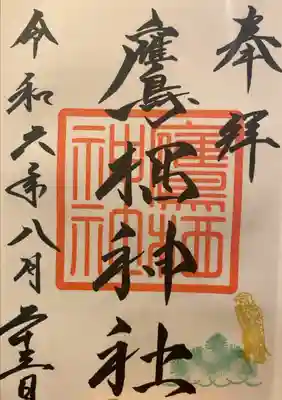 奉拝
鷹栖神社
令和六年八月日
鷹栖
神社